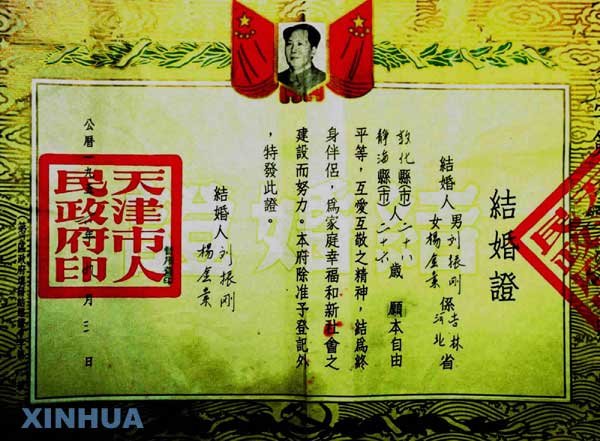 結婚證
結婚人 男刘振剛 係吉林省
女楊金 河北
敦化縣(市)人二十八歲 願本自由
靜海縣(市) 二十六
平等，互愛互敬之精神，結爲終
身伴侶，爲家庭幸福和新社會之
建設而努力。本府除准予登記外
，特發此證。
結婚人 刘振剛
楊金
公曆一九五 年 月 日
天津市人
民政府印
結婚
XINHUA